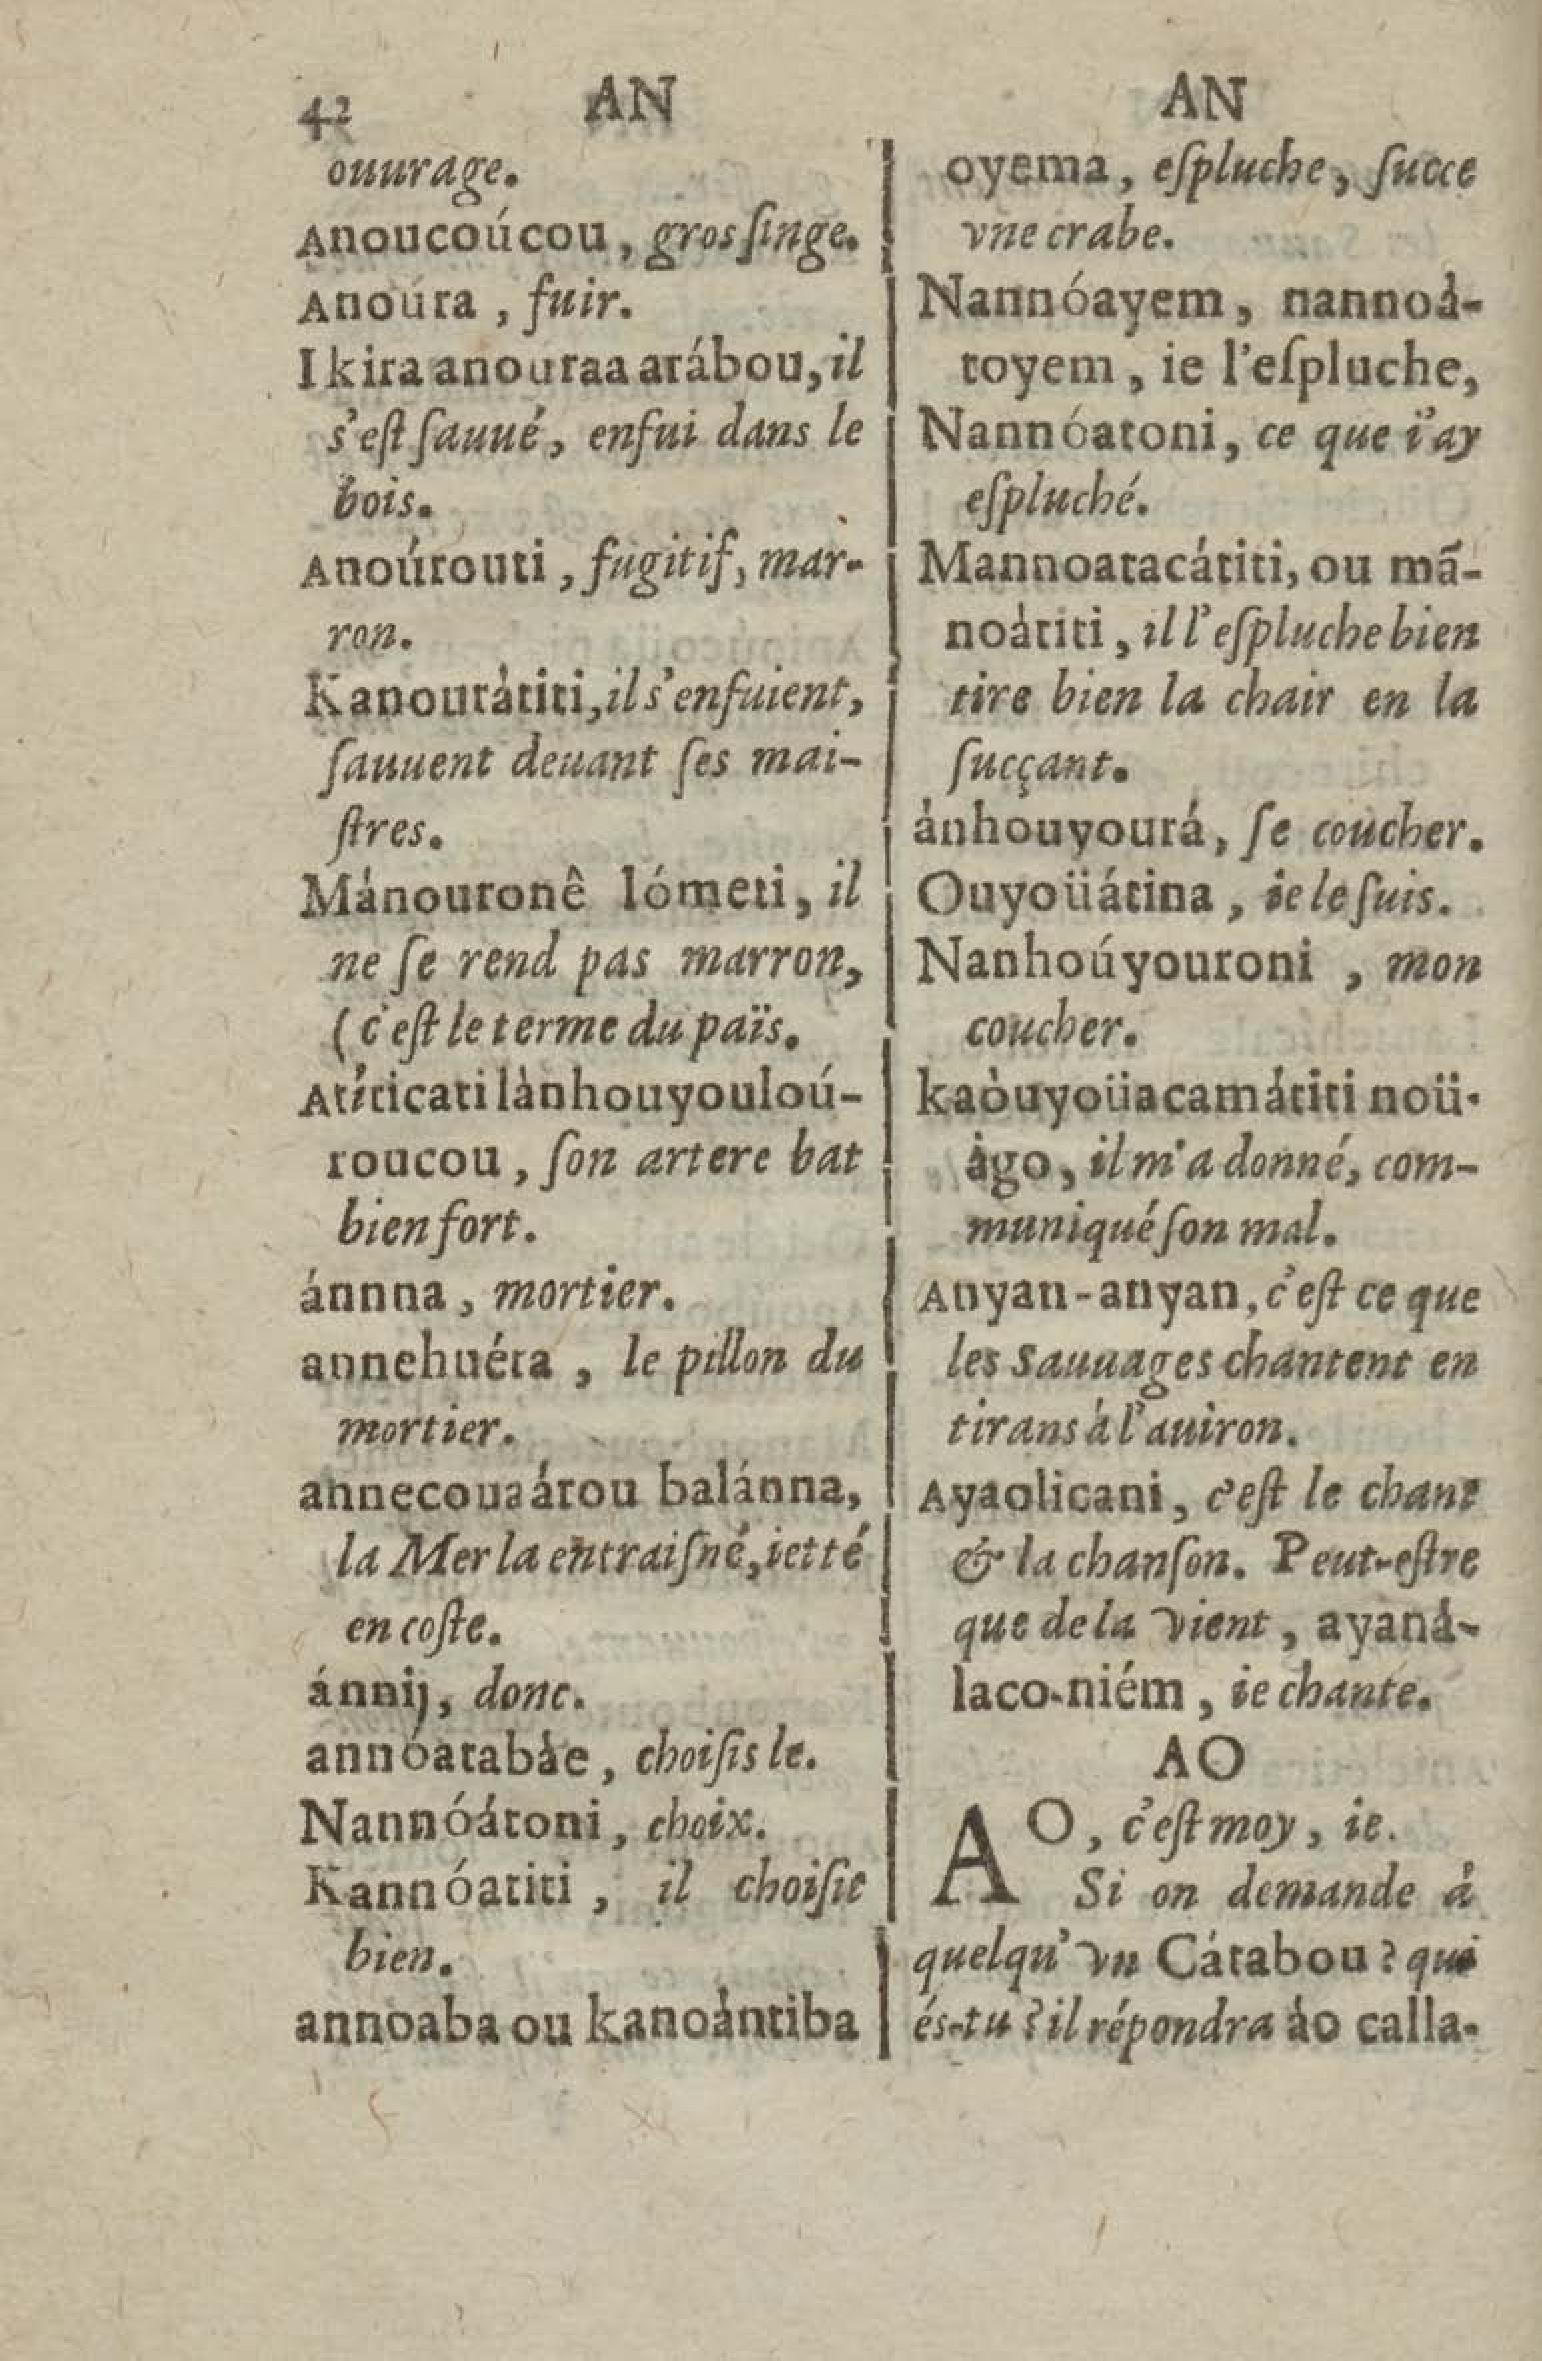 42 AN
ouurage.
Anoucoúcou, gros ſinge.
Anoúra, fuir.
Ikira anouraa arábou, il
s'eſt ſauué, enfui dans le
bois.
Anoúrouti, fugitif, mar-
ron.
Kanourátiti, il s'enfuient,
ſauuent deuant ſes mai-
ſtres.
Mánouronê lómeti, il
ne ſe rend pas marron,
(c'eſt le terme du païs.
Atíticati lànhouyouloú-
roucou, ſon artere bat
bien fort.
ánnna, mortier.
annehuéra, le pillon du
mortier.
annecouaárou balánna,
la Mer la entraiſné, ietté
en coſte.
ánnij, donc.
annóatabàe, choiſis le.
Nannóátoni, choix.
Kannóatiti, il choiſit
bien.
annoaba ou kanoántiba
AN
oyema, eſpluche, ſucce
vne crabe.
Nannóayem, nannoá-
toyem, ie l'eſpluche,
Nannóatoni, ce que i'ay
eſpluché.
Mannoatacátiti, ou mã-
noátiti, il l'eſpluche bien
tire bien la chair en la
ſucçant.
ánhouyourá, ſe coucher.
Ouyoüátina, ie le ſuis.
Nanhoúyouroni, mon
coucher.
kaòuyoüacamátiti noü-
ágo, il m'a donné, com-
muniqué ſon mal.
Anyan-anyan, c'eſt ce que
les Sauuages chantent en
tirans à l'auiron.
Ayaolicani, c'eſt le chant
& la chanſon. Peut-eſtre
que de la vient, ayaná-
laco-niém, ie chante.
AO
AO, c'eſt moy, ie.
Si on demande à
quelqu'vn Cátabou? qui
és-tu? il répondra áo calla-